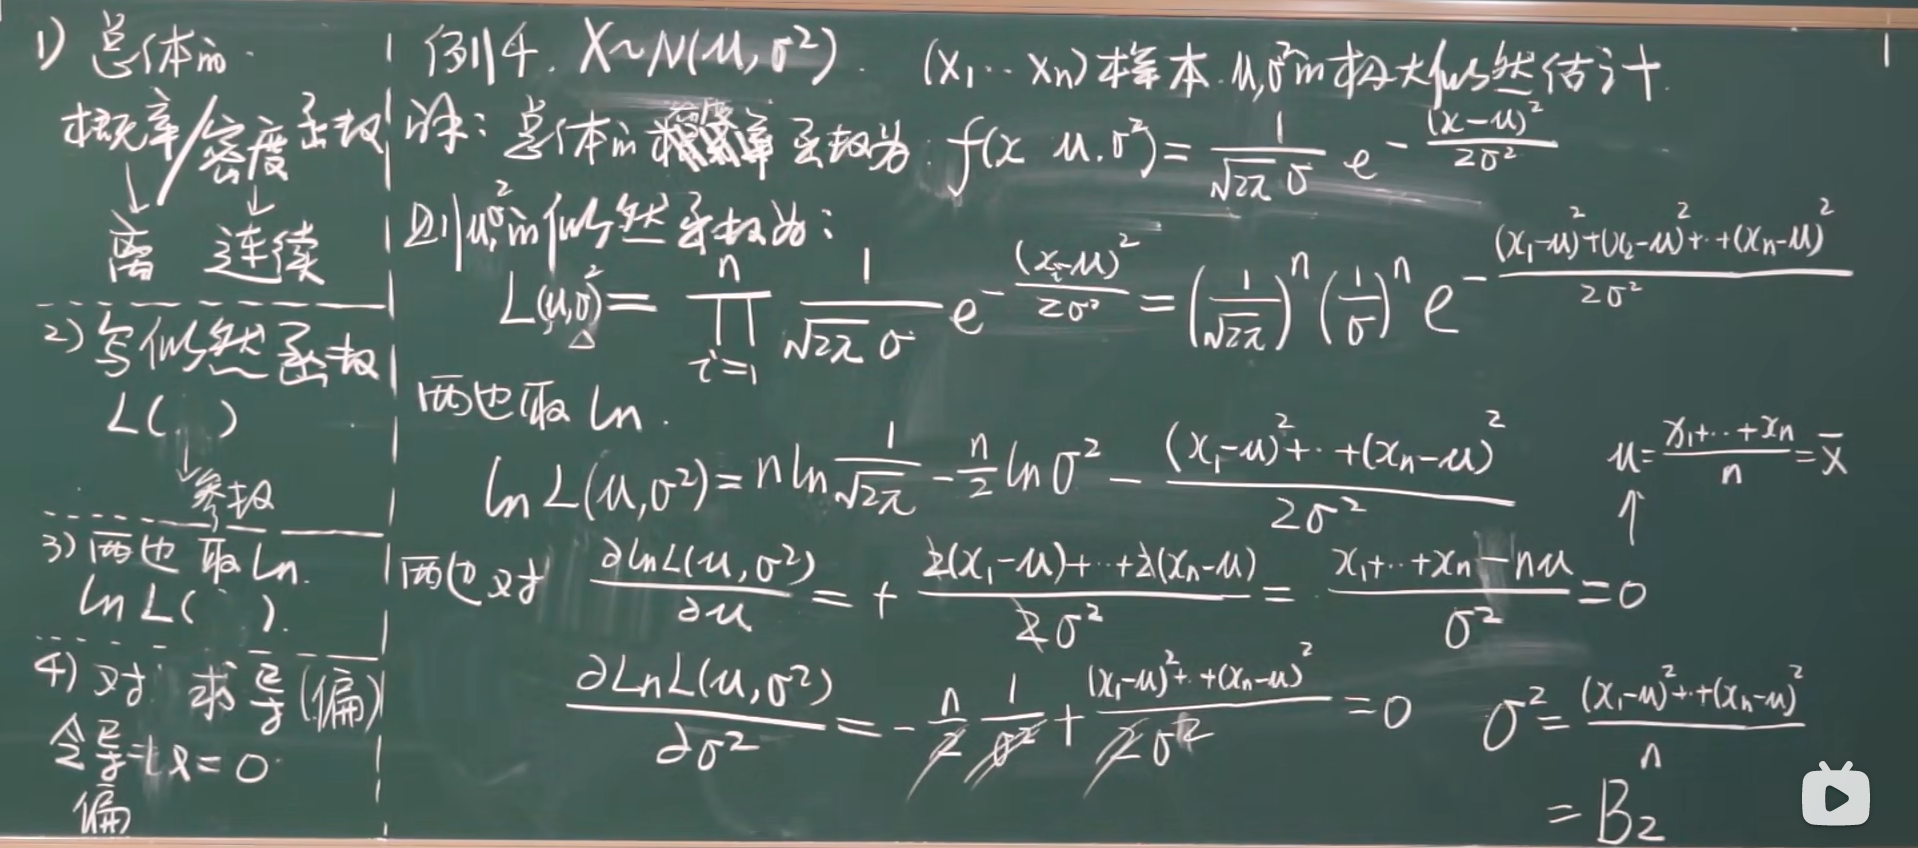 1) 总体的
概率/密度函数
↓ ↓
离 连续
2) 写似然函数
L( )
↓
参数
3) 两边取ln.
ln L( ).
4) 对 求导(偏)
令导=0
偏
例4. X~N(μ,σ²). (x₁··xₙ)样本.μ,σ²的极大似然估计.
解:总体的密度函数为:f(x μ.σ²)=1/(√2π σ) e^(-(x-μ)²/2σ²)
则μ,σ²的似然函数为:
L(μ,σ²)=∏ⁿᵢ₌₁ 1/(√2π σ) e^(-(xᵢ-μ)²/2σ²)=(1/√2π)ⁿ(1/σ)ⁿ e^(-((x₁-μ)²+(x₂-μ)²+··+(xₙ-μ)²)/2σ²)
两边取ln.
ln L(μ,σ²)=n ln 1/√2π - n/2 ln σ² - ((x₁-μ)²+··+(xₙ-μ)²)/2σ²
μ=(x₁+··+xₙ)/n=x̄
↑
两边对 ∂lnL(μ,σ²)/∂μ=+(2(x₁-μ)+··+2(xₙ-μ))/2σ²=(x₁+··+xₙ-nμ)/σ²=0
∂LnL(μ,σ²)/∂σ²=-n/2 1/σ²+((x₁-μ)²+··+(xₙ-μ)²)/2σ²=0
σ²=((x₁-μ)²+··+(xₙ-μ)²)/n
=B₂